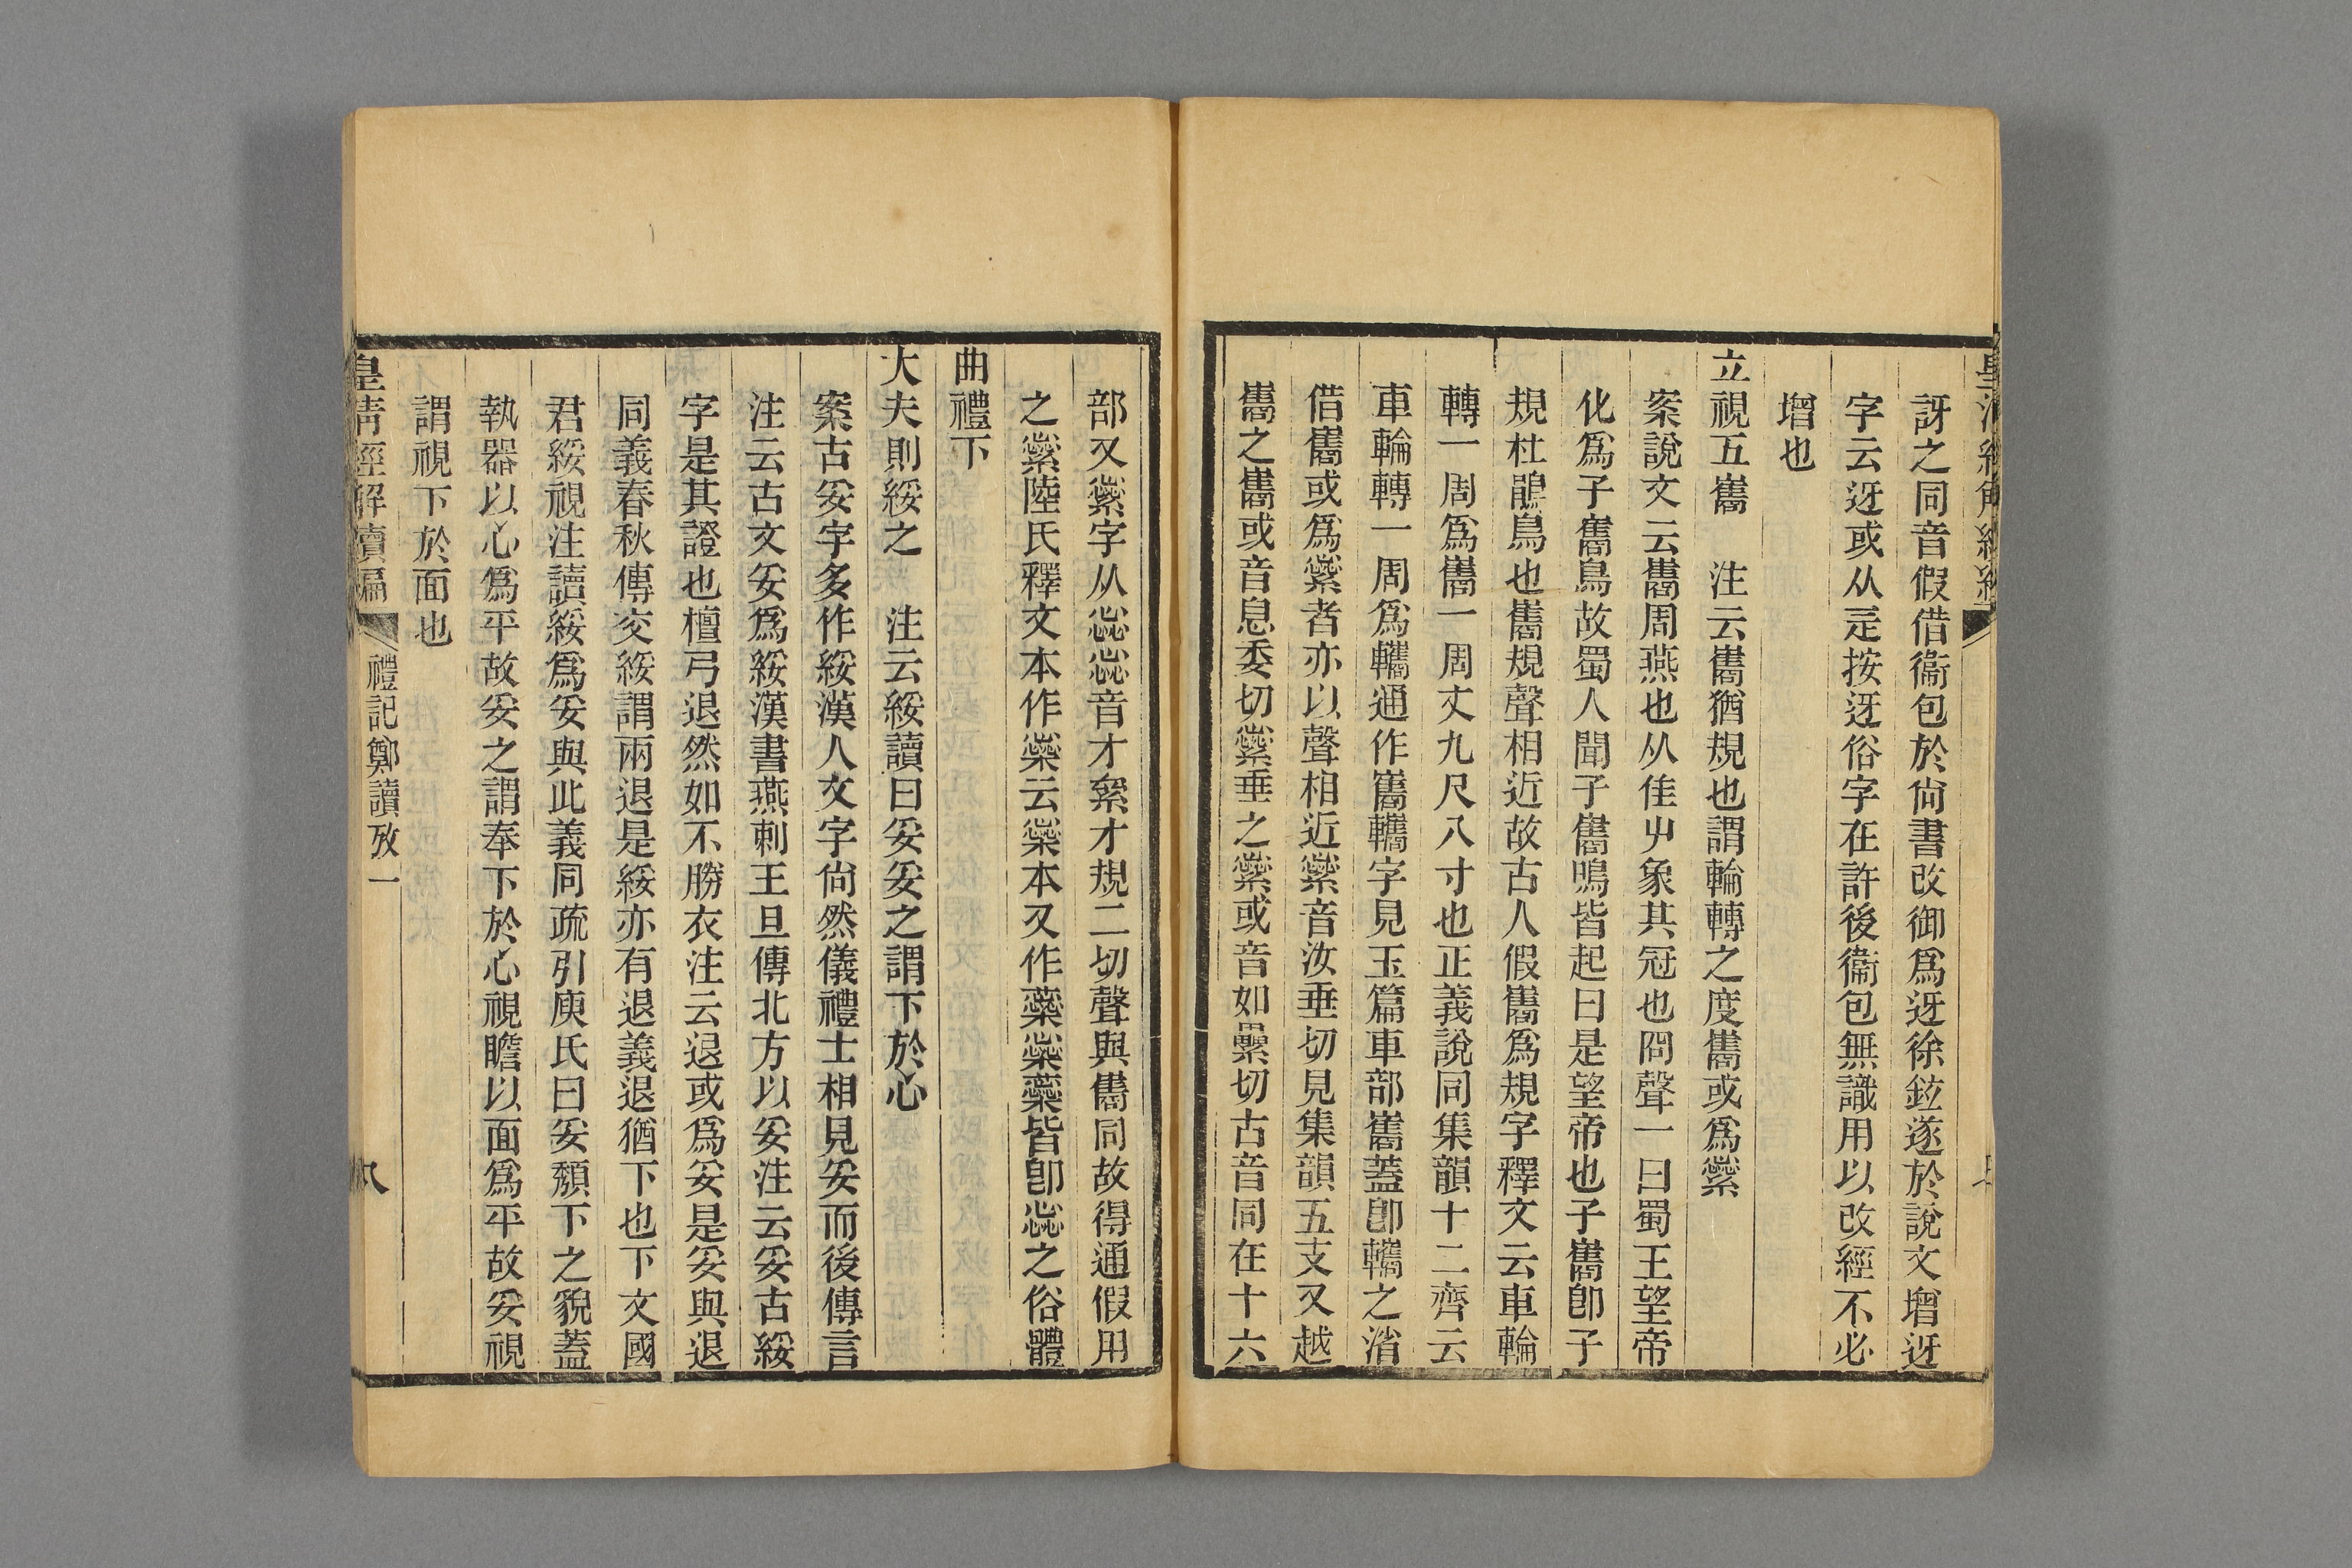 訝之同音假借衞包於尙書改御爲迓徐鉉遂於說文增迓
字云迓或从辵按迓俗字在許後衞包無識用以改經不必
增也
立視五巂　注云巂猶規也謂輪轉之度巂或爲繠
案說文云巂周燕也从隹屮象其冠也冏聲一曰蜀王望帝
化爲子巂鳥故蜀人聞子巂鳴皆起曰是望帝也子巂卽子
規杜鵑鳥也巂規聲相近故古人假巂爲規字釋文云車輪
轉一周爲巂一周丈九尺八寸也正義說同集韻十二齊云
車輪轉一周爲轊通作巂轊字見玉篇車部巂蓋卽轊之消
借巂或爲繠者亦以聲相近繠音汝垂切見集韻五支又越
巂之巂或音息委切繠垂之繠或音如纍切古音同在十六
部又繠字从惢惢音才絫才規二切聲與巂同故得通假用
之繠陸氏釋文本作橤云橤本又作蘂橤蘂皆卽惢之俗體
曲禮下
大夫則綏之　注云綏讀曰妥妥之謂下於心
案古妥字多作綏漢人文字尙然儀禮士相見妥而後傳言
注云古文妥爲綏漢書燕刺王旦傳北方以妥注云妥古綏
字是其證也檀弓退然如不勝衣注云退或爲妥是妥與退
同義春秋傳交綏謂兩退是綏亦有退義退猶下也下文國
君綏視注讀綏爲妥與此義同疏引庾氏曰妥頽下之貌蓋
執器以心爲平故妥之謂奉下於心視瞻以面爲平故妥視
謂視下於面也
皇清經解續編
禮記鄭讀攷一
八